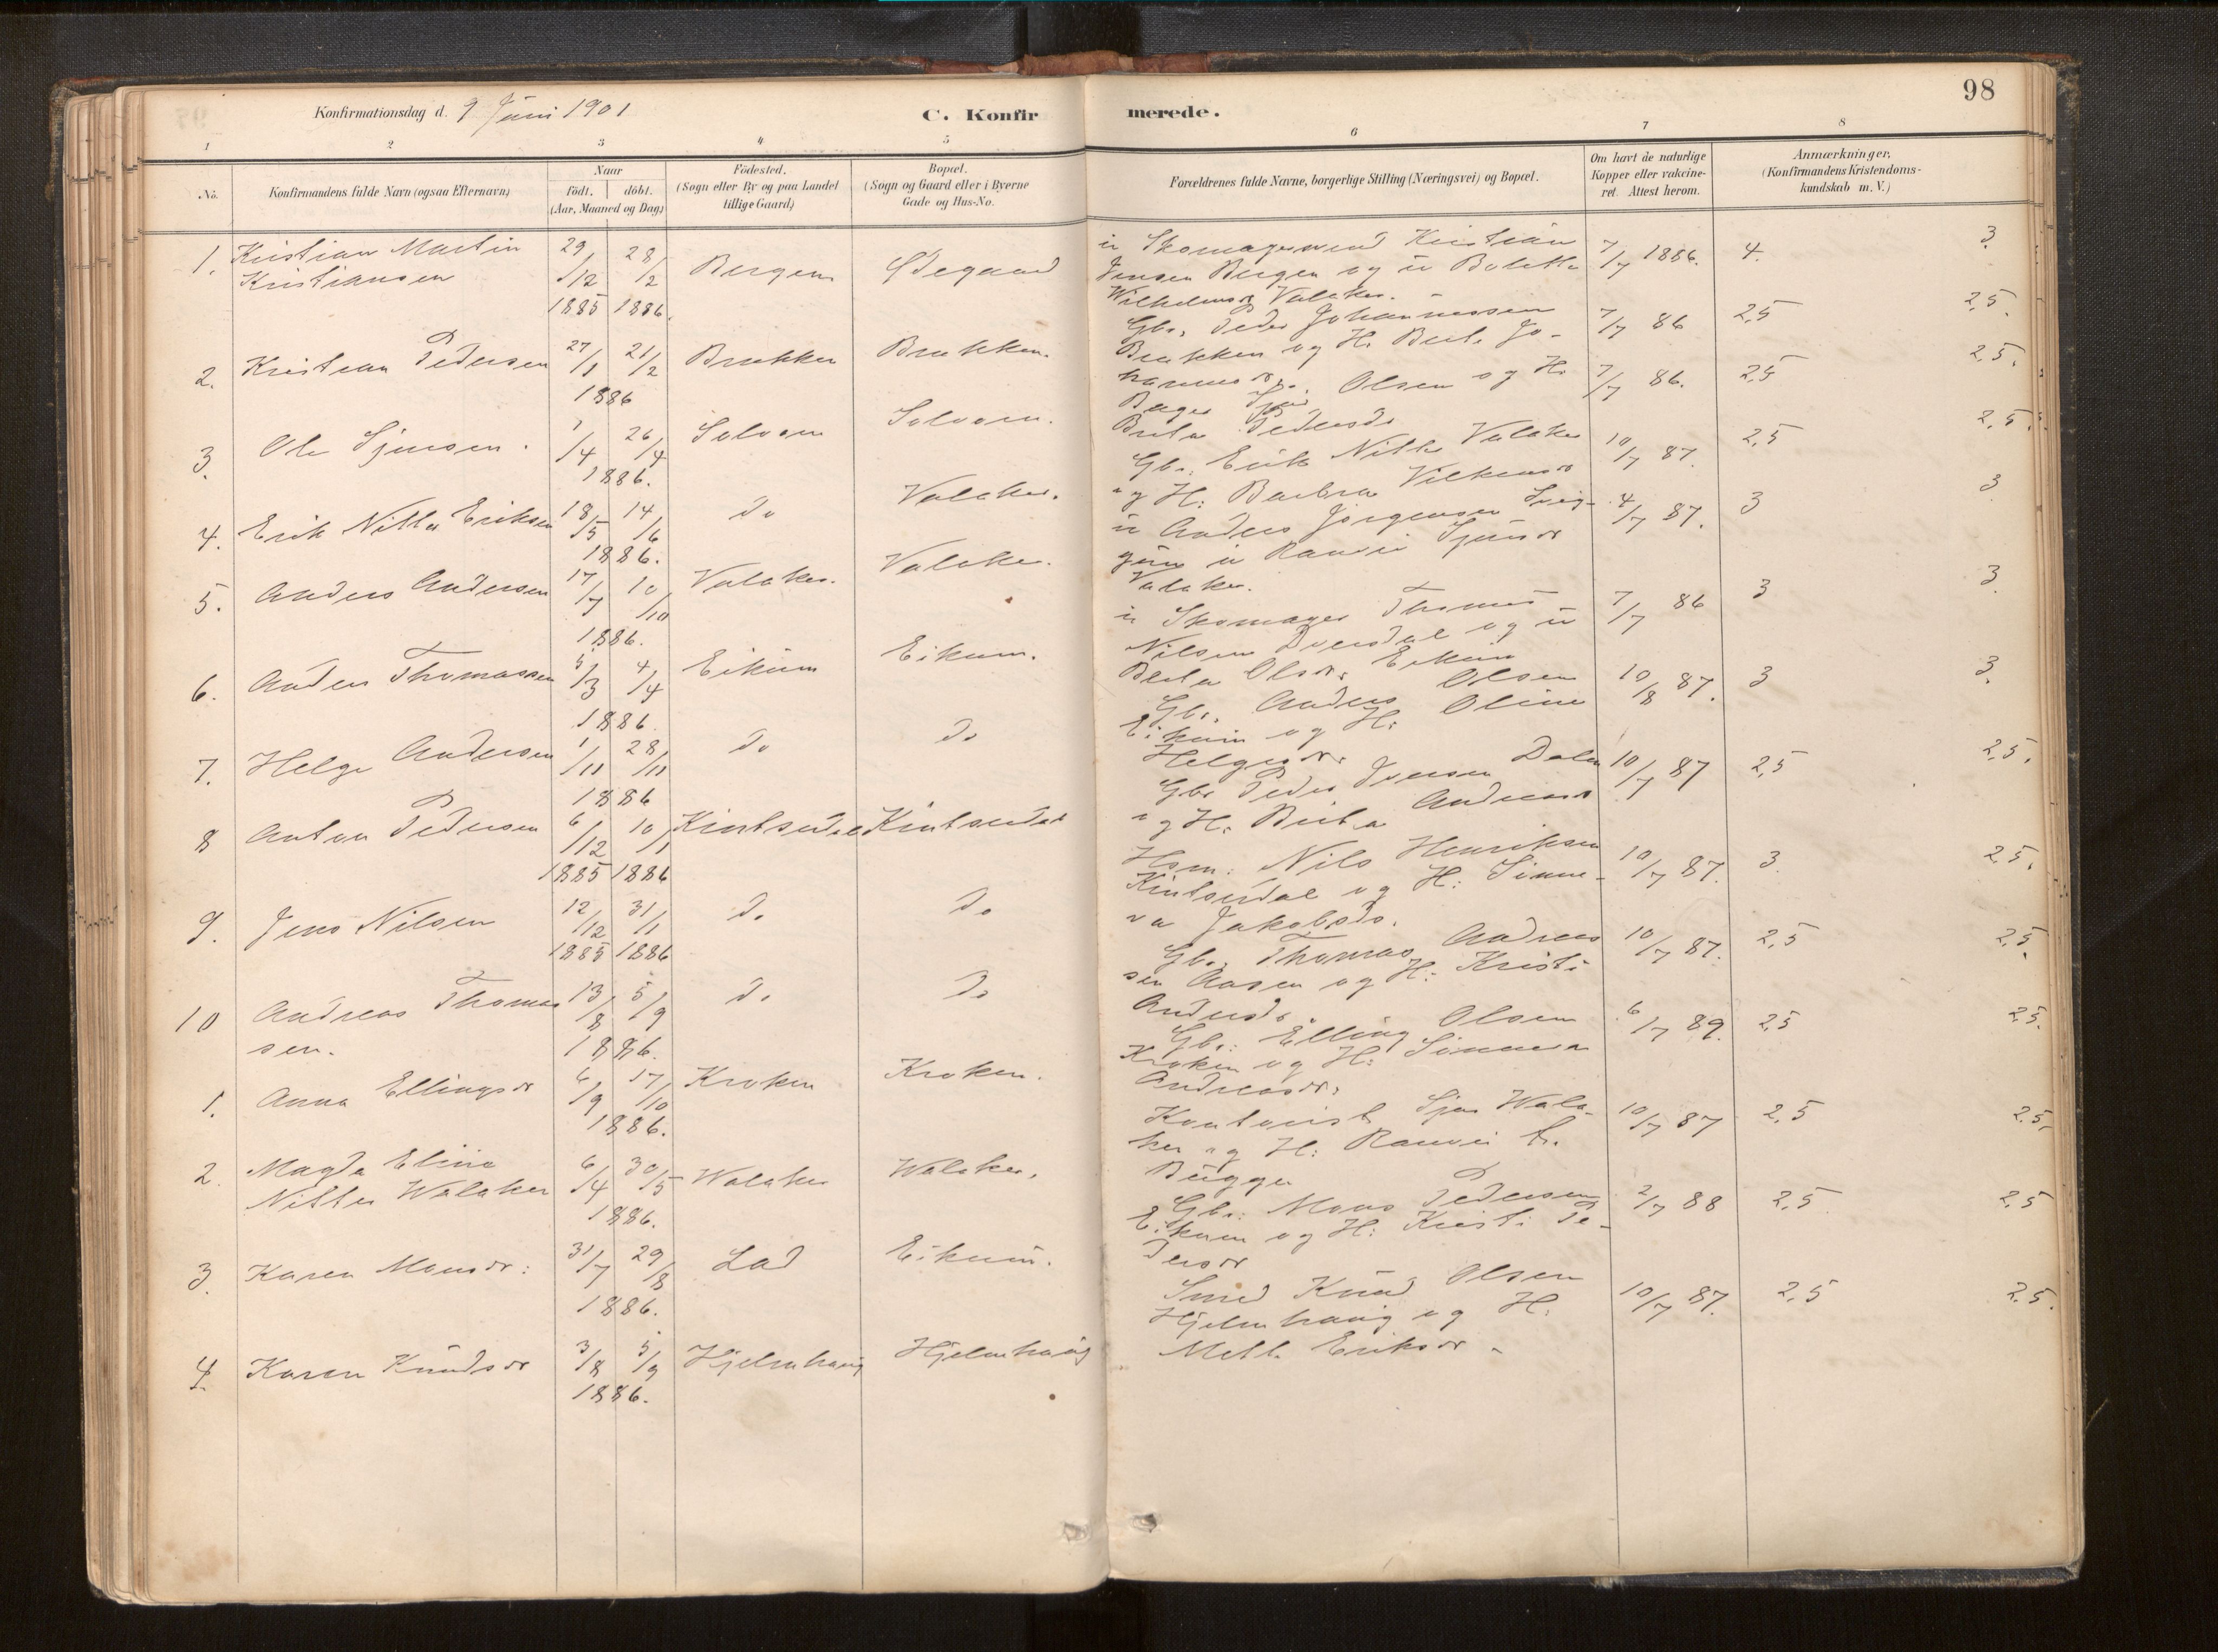 98
Konfirmationsdag d. 9 Juni 1901
C. Konfirmerede.
1 2 3 4 5 6 7 8
No.
Konfirmandens fulde Navn (ogsaa Efternavn)
Naar
födt. döbt.
(Aar, Maaned og Dag)
Födested.
(Sogn eller By og paa Landet
tillige Gaard)
Bopæl.
(Sogn og Gaard eller i Byerne
Gade og Hus-No.
Forældrenes fulde Navne, borgerlige Stilling (Næringsvei) og Bopæl.
Om havt de naturlige
Kopper eller vakcine-
ret. Attest herom.
Anmærkninger.
(Konfirmandens Kristendoms-
kundskab m. V.)
1. Kristian Martin
Kristiansen
29/12 28/2
1885 1886.
Bergen Ødegaard
Kristian
Jensen Bergen og u
Valaker.
7/7 1886. 4. 3.
2. Kristian Pedersen 27/1 21/2
1886
Brækken Brækken.
Gbr. Peder Johannessen
Brækken og H. Jo-
7/7 86 2,5 2,5.
3. Ole Sjursen. 7/4 26/4
1886.
Solvorn Solvorn.
Olsen og H.
Pedersdr
7/7 86. 2,5 2,5.
4. Erik Nitter Eriksen 18/5 14/6
1886.
do Valaker.
Gbr. Erik Nitter Valaker
og H: Barbra
10/7 87. 2,5 2,5.
5. Anders Andersen 17/7 10/10
1886.
Valaker. Valaker.
u Anders Jørgensen
Valaker.
4/7 87. 3 3
6. Anders Thomassen 5/3 4/4
1886.
Eikum Eikum.
u Skomager Thomas
Nilsen og u
Olsdr. Eikum
7/7 86 3 3.
7. Helge Andersen 1/11 28/11
1886
do do
Gbr. Anders Olsen
Eikum og H: Oline
Helgesdr.
10/8 87. 3 3.
8 Anton Pedersen 6/12 10/1
1885 1886
Kintsedal Kintsedal
Gbr Peder Iversen Dalen
og H. Andersdr
10/7 87 2,5 2,5.
9. Jens Nilsen 12/12 31/1
1885 1886
do do
Hsm: Nils Henriksen
Kintsedal og H: Sinne-
va Jakobsdr.
10/7 87. 3. 2,5.
10 Andreas Thomas
sen.
13/8 5/9
1886.
do do
Gbr. Thomas Andreas
sen Aasen og H: Kristi
Andersdr.
10/7 87. 2,5 2,5.
1. Anna Ellingsdr 6/9 17/10
1886.
Kroken Kroken.
Gbr: Elling Olsen
Kroken og H: Sinneva
Andreasdr.
6/7 89. 2,5 2,5.
2. Magda Elina
Nitter Walaker
6/4 30/5
1886.
Walaker Walaker.
Kontorist Sjur Wala-
ker og H:
Bugge
10/7 87 2,5 2,5.
3. Karen Monsdr: 31/7 29/8
1886.
Lad Eikum.
Gbr: Mons Pedersen
Eikum og H: Kristi Pe-
dersdr
2/7 88 2,5 2,5
4. Karen Knudsdr 3/8 5/9
1886.
Hjelmhaug Hjelmhaug
Smed Knud Olsen
Hjelmhaug og H:
Eriksdr.
10/7 87. 2,5 2,5.